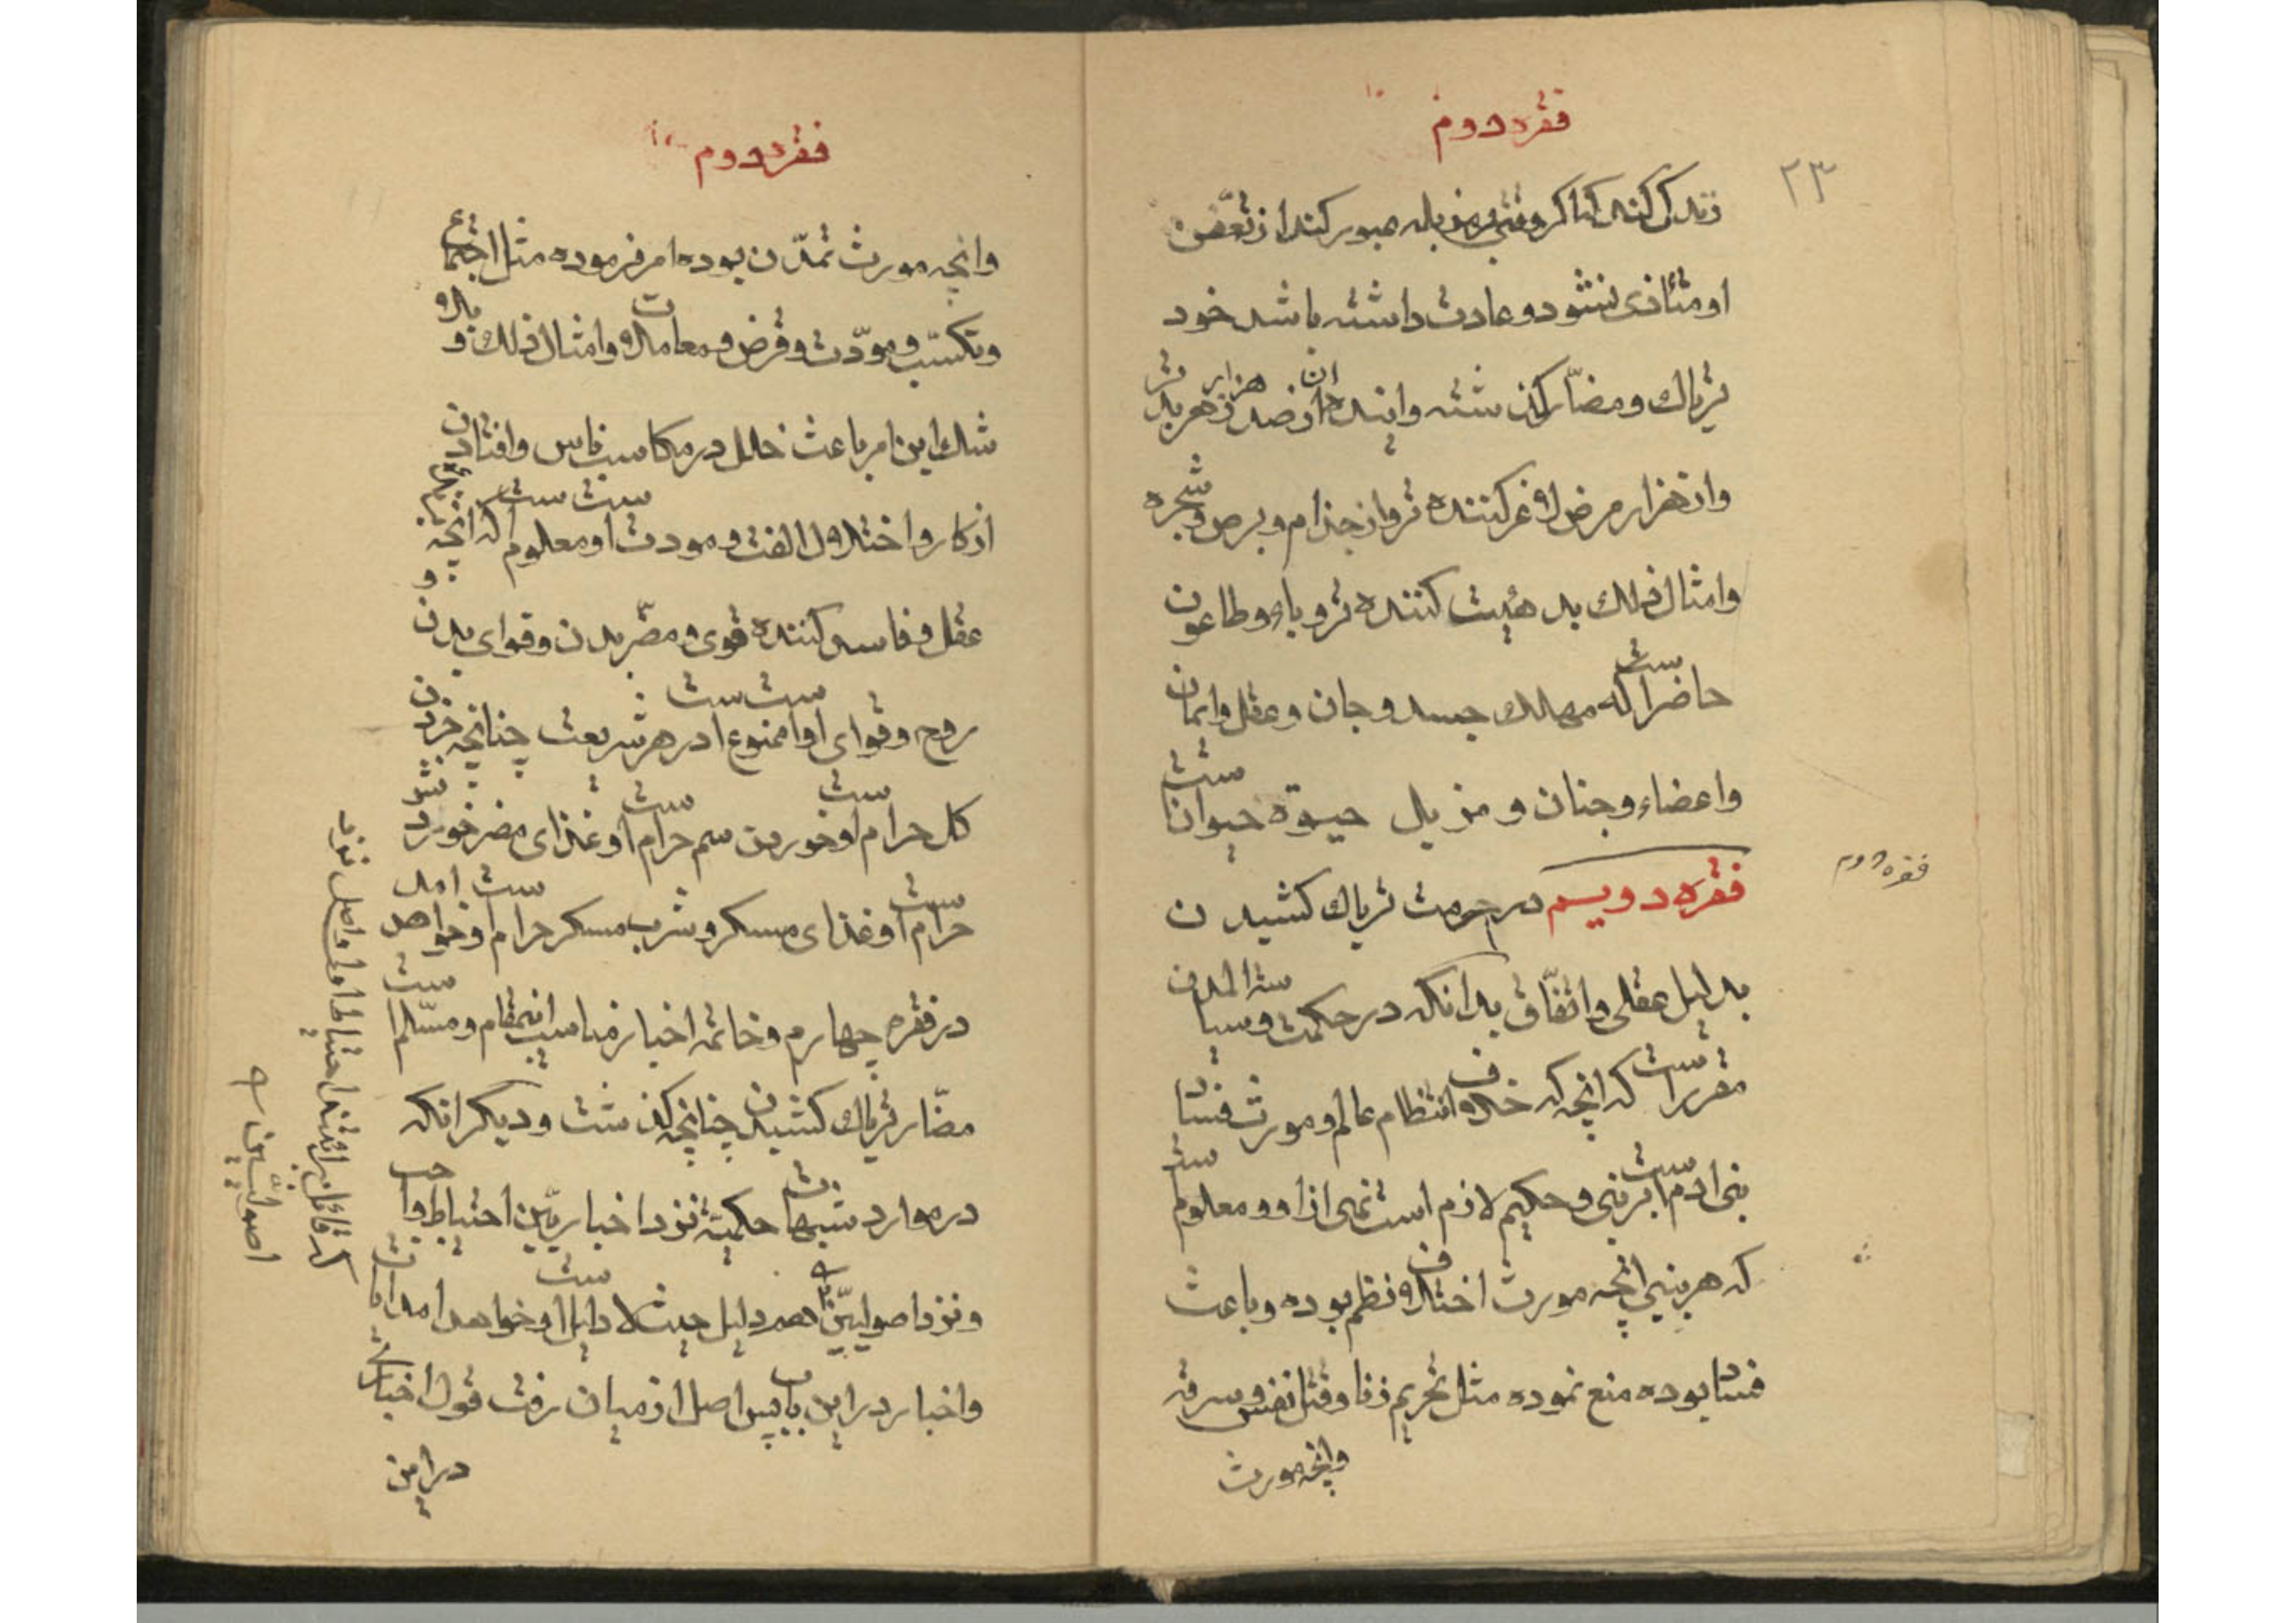 فقره دوم
۲۳
زندگی کنند کناکر وقتی بمزبله عبور کند از تعفّن
او متأذی نشود و عادت داشته باشد خود
تریاک و مضارّ گذشته و اینده ان از صد هزار زهر بدتر
و از هزار مرض لاغر کننده تر و از جذام و برص و شجره
و امثال ذلک بد هیئت کننده تر و باء و طاعون
حاضر است که مهلک جسد و جان و عقل و ایمان
و اعضاء و جنان و مزیل حیوة حیوانا ست
فقره دوم
فقره دویم در حرمت تریاک کشیدن
بدلیل عقلی و اتّفاق بدانکه در حکمت و سیاسة المدن
مقرر است که انچه که خلاف انتظام عالم و مورث فساد
بنی ادم است بر نبی و حکیم لازم است نهی از او و معلوم ست
که هر نبیی انچه مورث اختلاف نظم بوده و باعث
فساد بوده منع نموده مثل تحریم زنا و قتل نفس و سرقه
وانچه مورث
فقره دوم
وانچه مورث تمدّن بوده امر فرموده مثل اجتماع
و تکسّب و مودّت و قرض و معاملات و امثال ذلک و بلا
شک این امر باعث خلل در مکاسب ناس و افتادن
از کار و اختلال الفت و مودت است و معلوم است که انچه
عقل و فاسد کننده قوی و مضرّ بدن و قوای بدن و
روح و قوای او است ممنوع است در هر شریعت چنانچه خوردن
کل حرام است و خوردن سم حرام است و غذای مضر خوردن
حرام است و غذای مسکر و شرب مسکر حرام است و خواهد امد
در فقره چهارم و خاتمه اخبار مناسب انمقام و مسلّم است
مضّار تریاک کشیدن چنانچه گذشت و دیگر انکه
در موارد شبهات حکمیّة نزد اخباریین احتیاط واجب
و نزد اصولیّین هم دلیل حیث لا دلیل است و خواهد امد ایات
و اخبار در این باب پس اصل از میان رفت قول اخباری
در این
که قائل ببرائتند احتیاط اولی و اصل نزد
اصولیّین